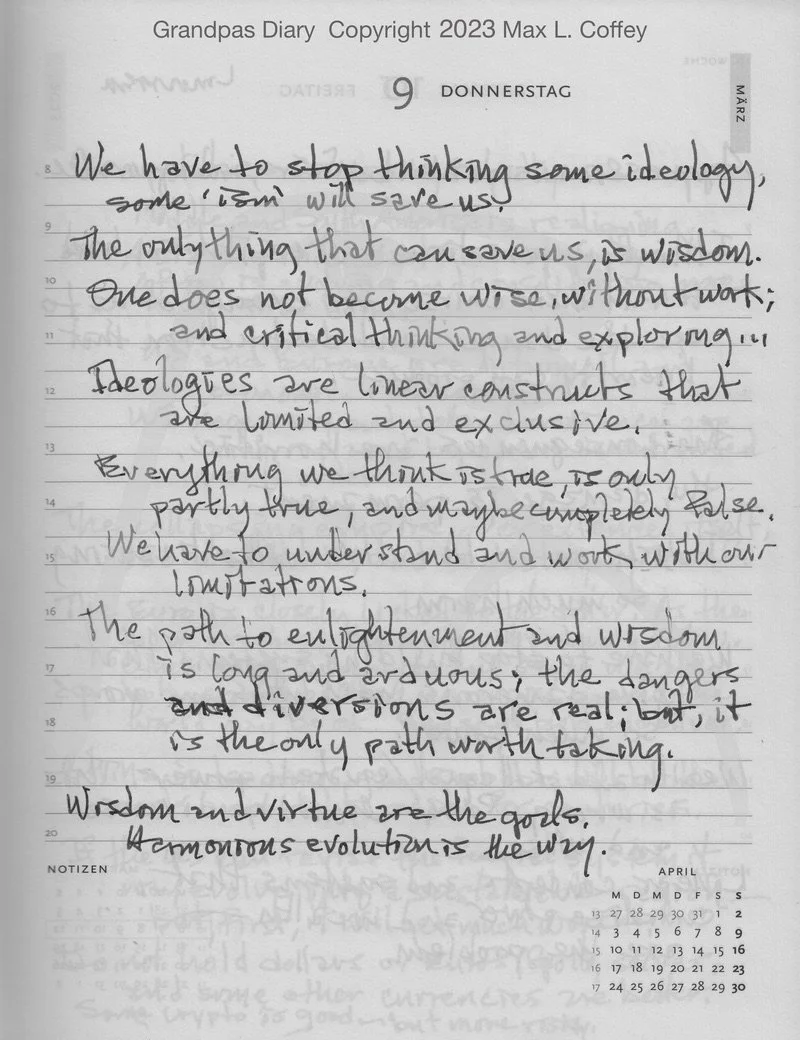 Grandpas Diary Copyright 2023 Max L. Coffey
9 DONNERSTAG
MÄRZ
8 We have to stop thinking some ideology,
some 'ism' will save us.
9
The only thing that can save us, is wisdom.
10 One does not become wise, without work;
11 and critical thinking and exploring...
12 Ideologies are linear constructs that
are limited and exclusive.
13
Everything we think is true, is only
14 partly true, and maybe completely false.
15 We have to understand and work with our
limitations.
16 The path to enlightenment and wisdom
17 is long and arduous; the dangers
and diversions are real; but, it
18 is the only path worth taking.
19
Wisdom and virtue are the goals.
20 Harmonious evolution is the way.
NOTIZEN
APRIL
M D M D F S S
13 27 28 29 30 31 1 2
14 3 4 5 6 7 8 9
15 10 11 12 13 14 15 16
16 17 18 19 20 21 22 23
17 24 25 26 27 28 29 30